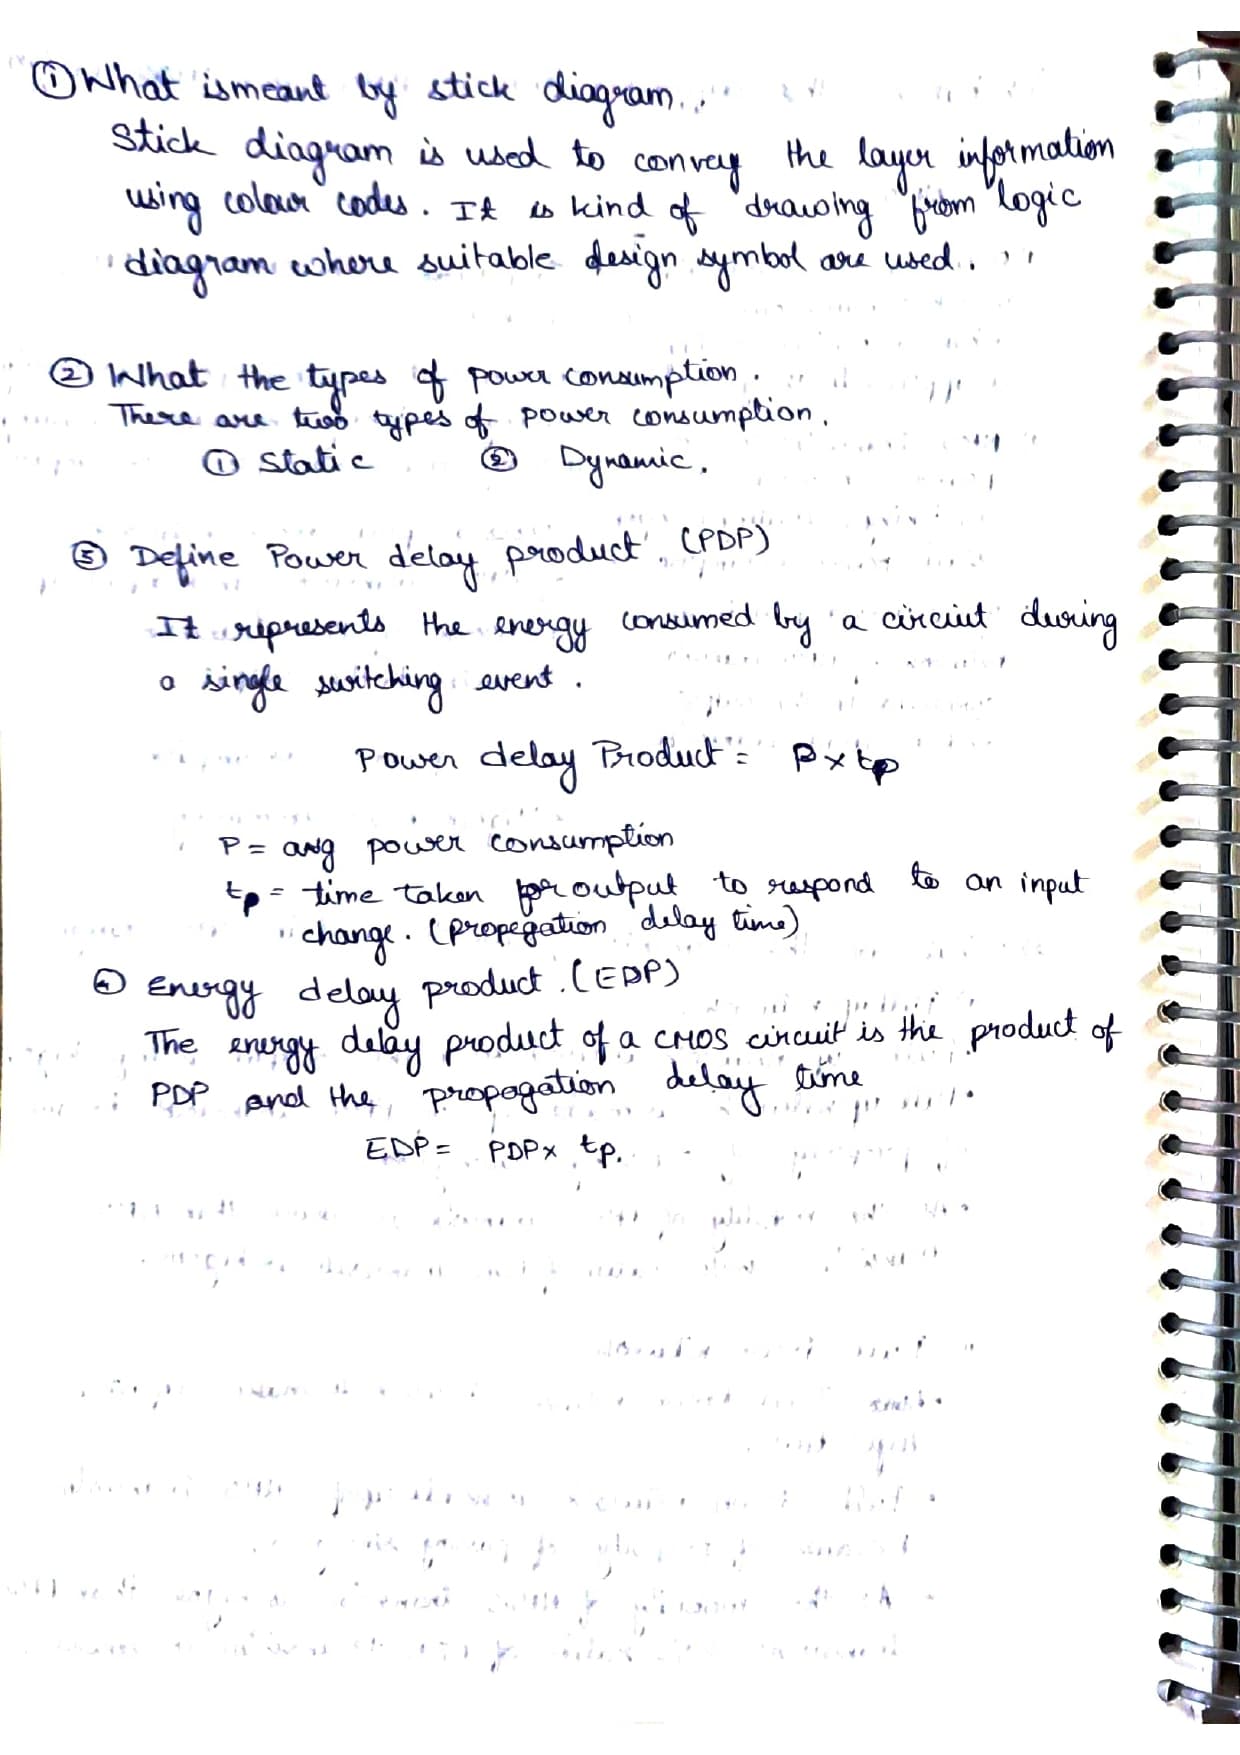 ① What is meant by stick diagram.
Stick diagram is used to convey the layer information
using colour codes. It is kind of drawing from logic
diagram where suitable design symbol are used.
② What the types of power consumption.
There are two types of power consumption.
① Static ② Dynamic.
③ Define Power delay product (PDP)
It represents the energy consumed by a circiut during
a single switching event.
Power delay Product = P x tp
P = avg power consumption
tp = time taken for output to respond to an input
change. (propegation delay time)
④ Energy delay product. (EDP)
The energy delay product of a CMOS circuit is the product of
PDP and the propogation delay time
EDP = PDP x tp.